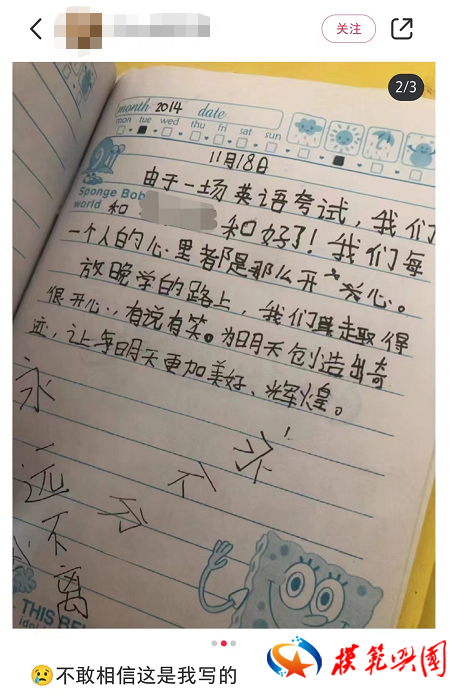 关注
2/3
month 2014 date
mon tue wed thu fri sat sun
11月18日
由于一场英语考试，我们
Sponge Bob
world
和 和好了！我们每
一个人的心里都是那么开心。
放晚学的路上，我们走得
很开心，有说有笑。为明天创造出奇
迹，让每明天更加美好、辉煌。
永
远
不
离
永
不
分
THIS BE
😢不敢相信这是我写的
模範興國